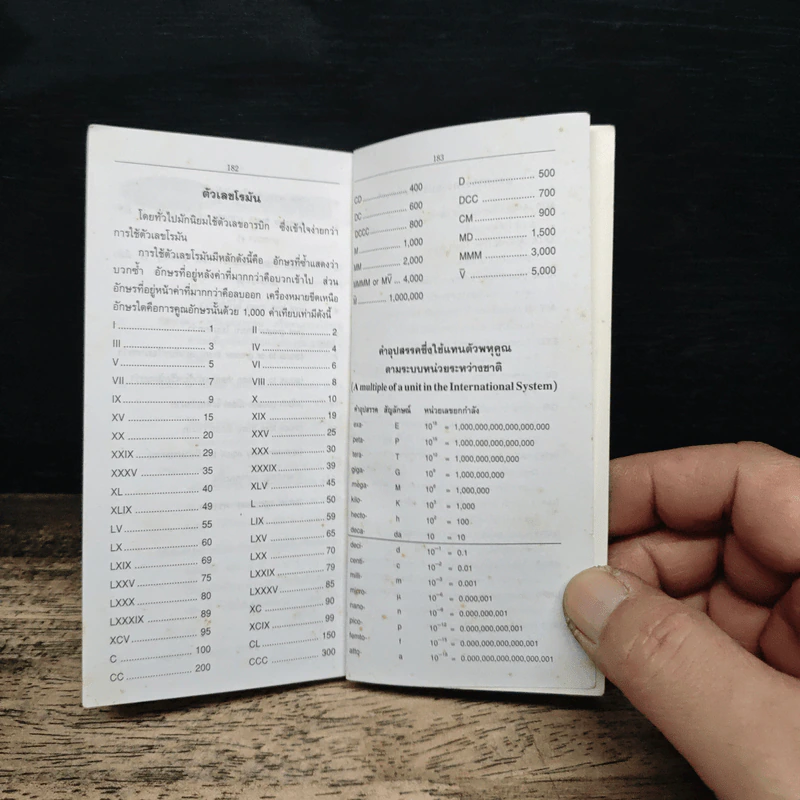 182
ตัวเลขโรมัน
โดยทั่วไปมักนิยมใช้ตัวเลขอารบิก ซึ่งเข้าใจง่ายกว่า
การใช้ตัวเลขโรมัน
การใช้ตัวเลขโรมันมีหลักดังนี้คือ อักษรที่ซ้ำแสดงว่า
บวกซ้ำ อักษรที่อยู่หลังค่าที่มากกว่าคือบวกเข้าไป ส่วน
อักษรที่อยู่หน้าค่าที่มากกว่าคือลบออก เครื่องหมายขีดเหนือ
อักษรใดคือการคูณอักษรนั้นด้วย 1,000 ค่าเทียบเท่ามีดังนี้
I ........ 1 II ........ 2
III ........ 3 IV ........ 4
V ........ 5 VI ........ 6
VII ........ 7 VIII ........ 8
IX ........ 9 X ........ 10
XV ........ 15 XIX ........ 19
XX ........ 20 XXV ........ 25
XXIX ........ 29 XXX ........ 30
XXXV ........ 35 XXXIX ........ 39
XL ........ 40 XLV ........ 45
XLIX ........ 49 L ........ 50
LV ........ 55 LIX ........ 59
LX ........ 60 LXV ........ 65
LXIX ........ 69 LXX ........ 70
LXXV ........ 75 LXXIX ........ 79
LXXX ........ 80 LXXXV ........ 85
LXXXIX ........ 89 XC ........ 90
XCV ........ 95 XCIX ........ 99
C ........ 100 CL ........ 150
CC ........ 200 CCC ........ 300
183
CD ........ 400 D ........ 500
DC ........ 600 DCC ........ 700
DCCC ........ 800 CM ........ 900
M ........ 1,000 MD ........ 1,500
MM ........ 2,000 MMM ........ 3,000
MMMM or MV̅ ... 4,000 V̅ ........ 5,000
........ 1,000,000
คำอุปสรรคซึ่งใช้แทนตัวพหุคูณ
ตามระบบหน่วยระหว่างชาติ
(A multiple of a unit in the International System)
คำอุปสรรค สัญลักษณ์ หน่วยเลขยกกำลัง
exa- E 10¹⁸ = 1,000,000,000,000,000,000
peta- P 10¹⁵ = 1,000,000,000,000,000
tera- T 10¹² = 1,000,000,000,000
giga- G 10⁹ = 1,000,000,000
mega- M 10⁶ = 1,000,000
kilo- K 10³ = 1,000
hecto- h 10² = 100
deca- da 10 = 10
deci- d 10⁻¹ = 0.1
centi- c 10⁻² = 0.01
milli- m 10⁻³ = 0.001
micro- µ 10⁻⁶ = 0.000,001
nano- n 10⁻⁹ = 0.000,000,001
pico- p 10⁻¹² = 0.000,000,000,001
femto- f 10⁻¹⁵ = 0.000,000,000,000,001
atto- a 10⁻¹⁸ = 0.000,000,000,000,000,001